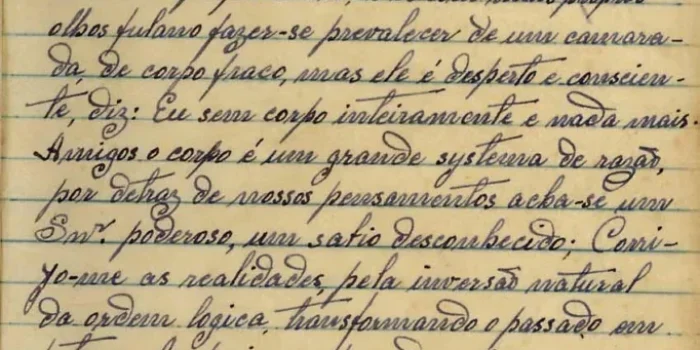 olhos fulano fazer-se prevalecer de um camara-
da, de corpo fraco, mas ele é desperto e conscien-
te, diz: Eu sem corpo inteiramente e nada mais.
Amigos o corpo é um grande systema de razão,
por detraz de nossos pensamentos acha-se um
Snr. poderoso, um safio desconhecido; Corri-
jo-me as realidades, pela inversão natural
da ordem logica, transformando o passado em